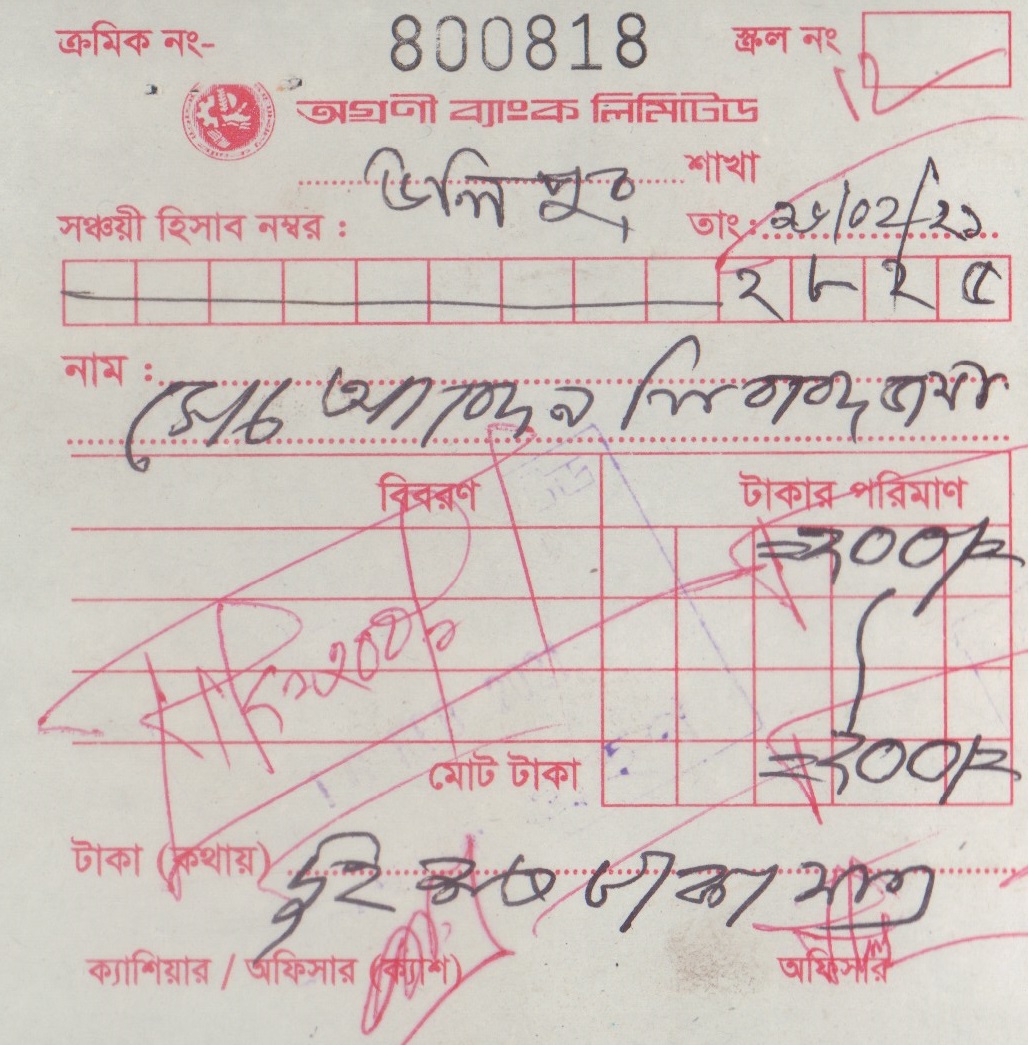 ক্রমিক নং- 800818 স্ক্রল নং
12
অগ্রণী ব্যাংক লিমিটেড
উলিপুর শাখা
সঞ্চয়ী হিসাব নম্বর : তাং:
২৮২৫
নাম :
বিবরণ টাকার পরিমাণ
=২০০/=
মোট টাকা =২০০/=
টাকা (কথায়) দুই শত টাকা মাত্র
ক্যাশিয়ার / অফিসার (ক্যাশ) অফিসার